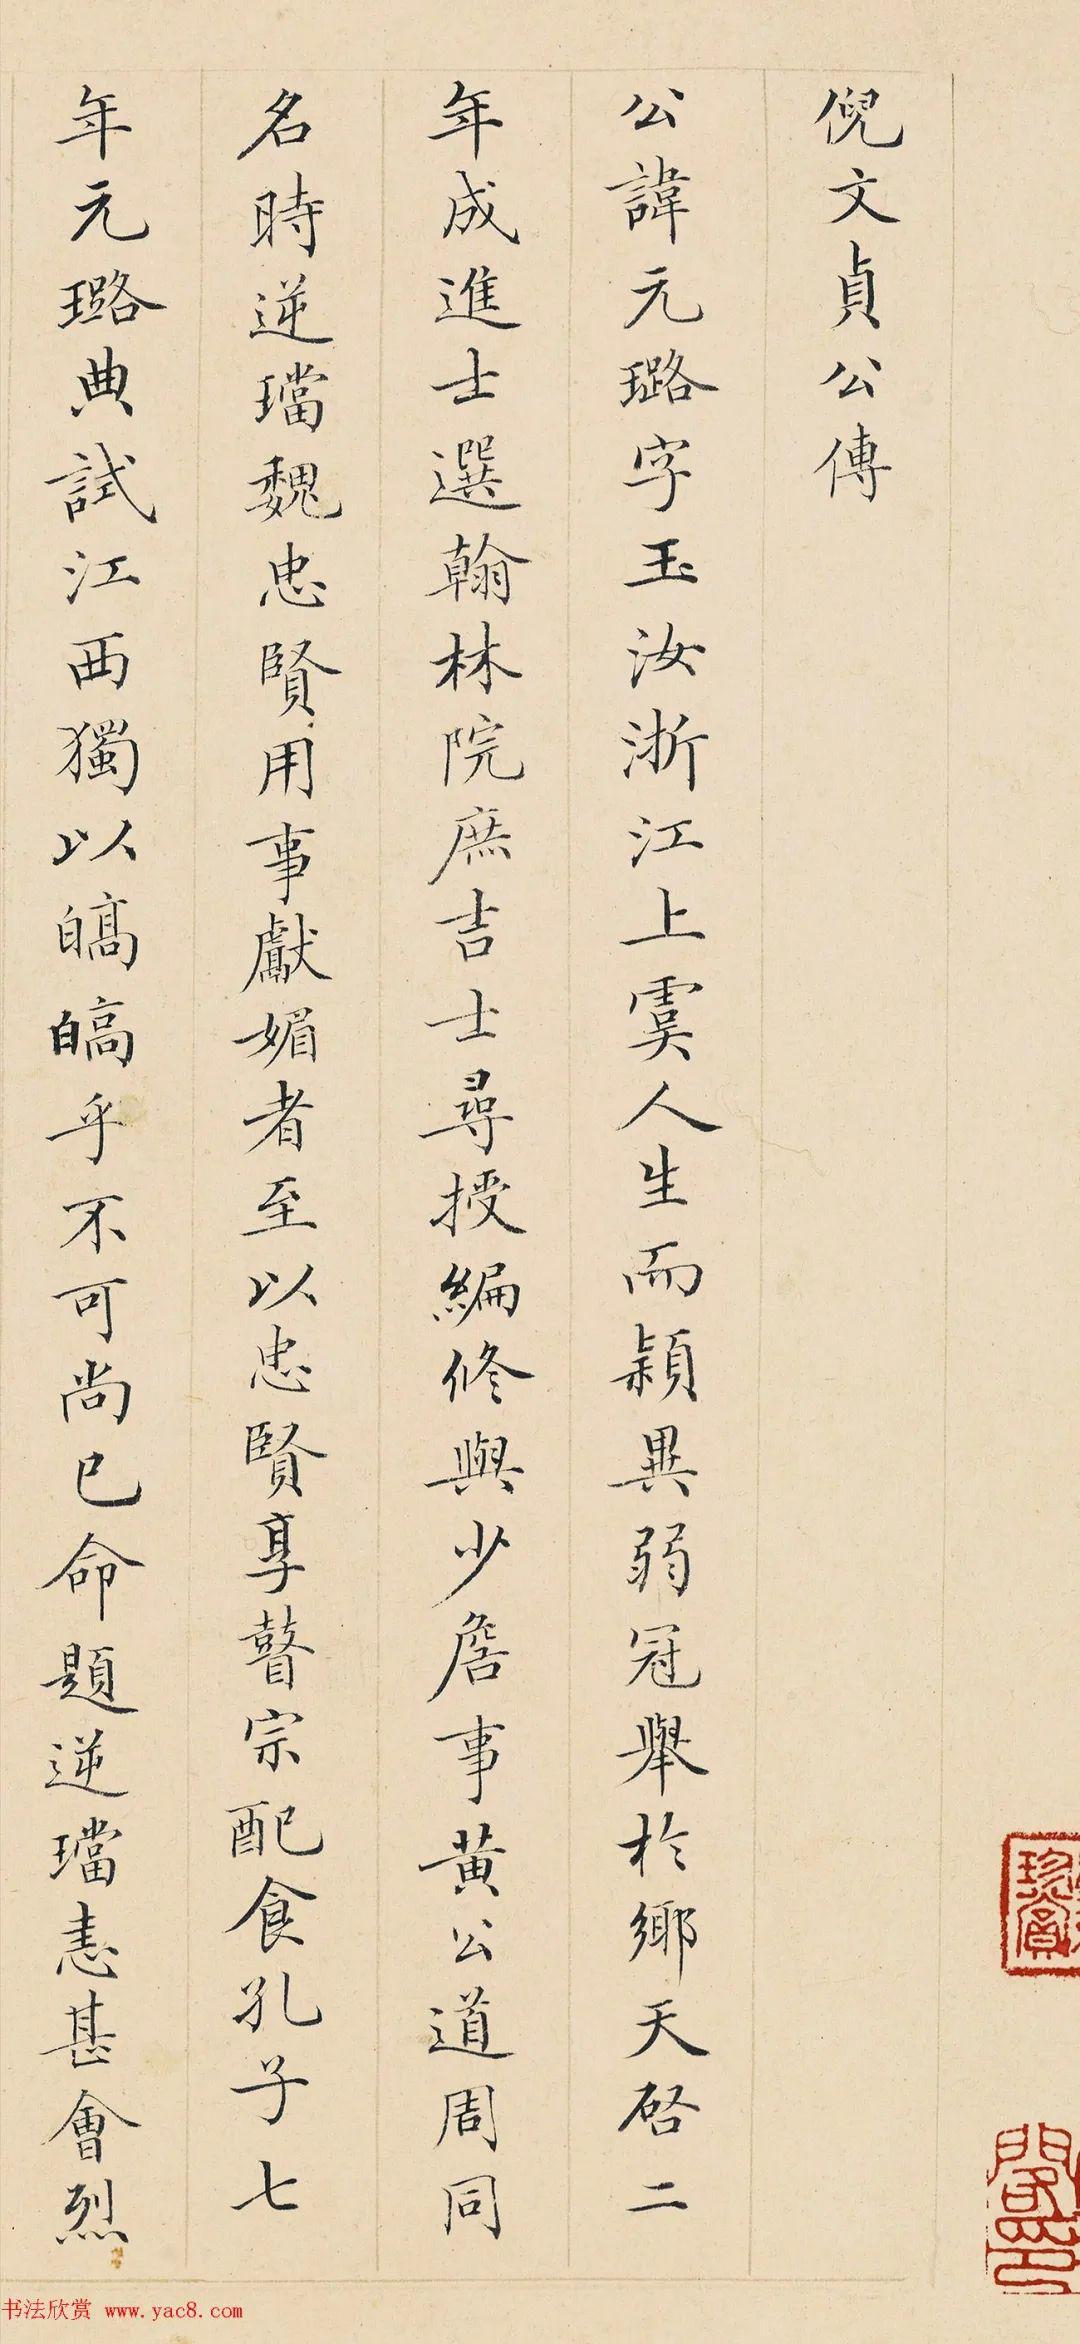 倪文貞公傳
公諱元璐字玉汝浙江上虞人生而穎異弱冠舉於鄉天啓二
年成進士選翰林院庶吉士尋授編修與少詹事黃公道周同
名時逆璫魏忠賢用事獻媚者至以忠賢享瞽宗配食孔子七
年元璐典試江西獨以皜皜乎不可尚已命題逆璫恚甚會烈
書法欣賞 www.yac8.com